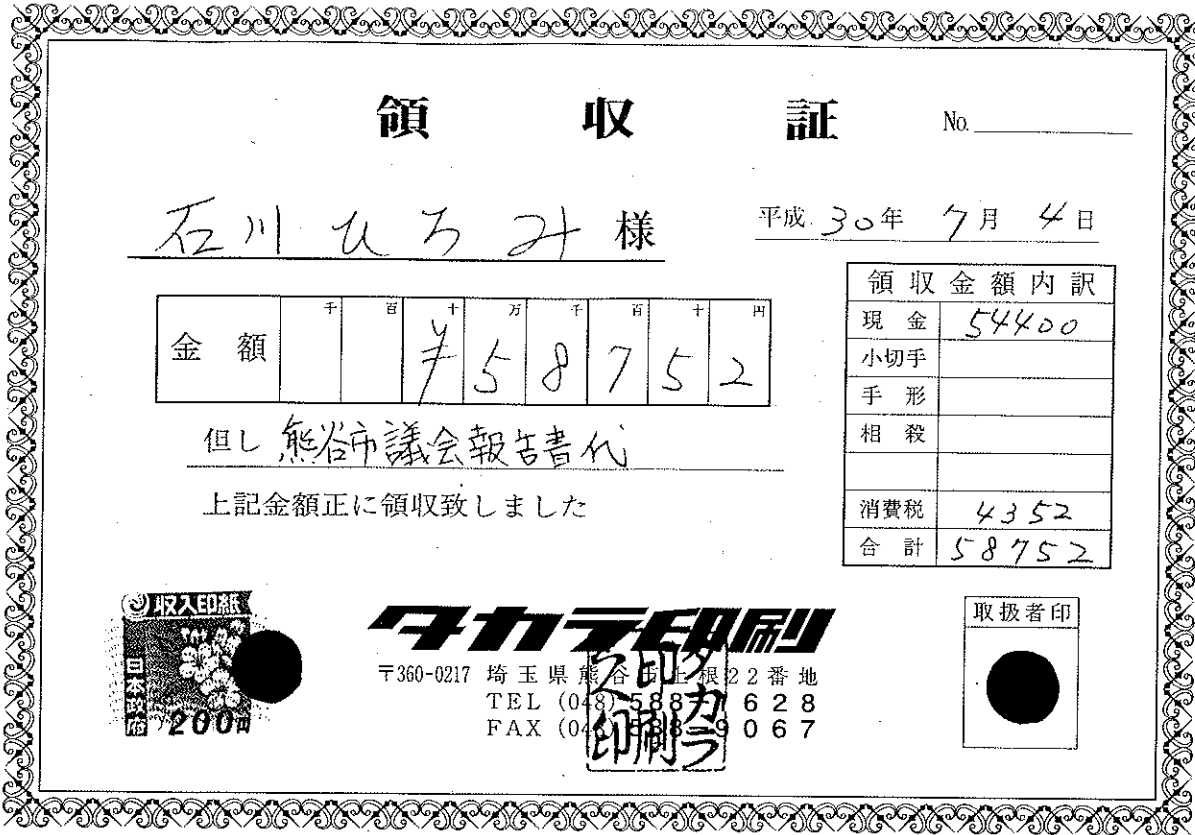 領収証
No.
石川ひろみ 様
平成 30年 7月 4日
金額 千 百 十 万 千 百 十 円
¥58752
但し 熊谷市議会報告書代
上記金額正に領収致しました
領収金額内訳
現金 54400
小切手
手形
相殺
消費税 4352
合計 58752
収入印紙
日本政府
200円
タカラ印刷
〒360-0217 埼玉県熊谷市上根22番地
TEL (048) 588
628
FAX (048) 588-9067
タカラ
印刷
取扱者印